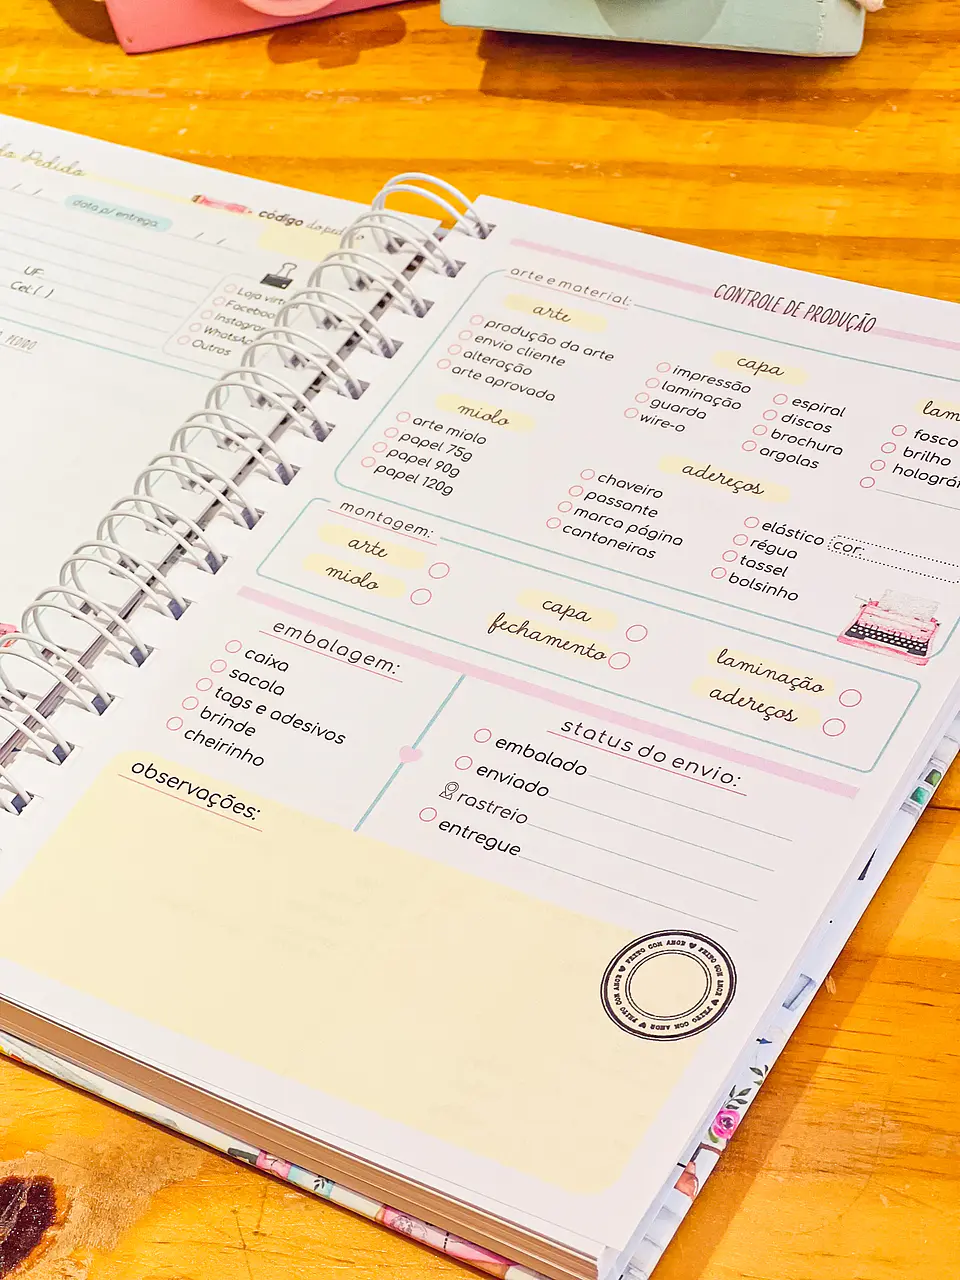 do Pedido
/ /
data p/ entrega
/ /
código do pedido
UF:
Cel: ( )
Loja virt
Facebook
Instagram
WhatsApp
Outros
PEDIDO
CONTROLE DE PRODUÇÃO
arte e material:
arte
produção da arte
envio cliente
alteração
arte aprovada
miolo
arte miolo
papel 75g
papel 90g
papel 120g
capa
impressão
laminação
guarda
wire-o
espiral
discos
brochura
argolas
lam
fosco
brilho
holográf
adereços
chaveiro
passante
marca página
cantoneiras
elástico cor:
régua
tassel
bolsinho
montagem:
arte
miolo
capa
fechamento
laminação
adereços
embalagem:
caixa
sacola
tags e adesivos
brinde
cheirinho
status do envio:
embalado
enviado
rastreio
entregue
observações:
FEITO COM AMOR ♥ FEITO COM AMOR ♥ FEITO COM AMOR ♥ FEITO COM AMOR ♥